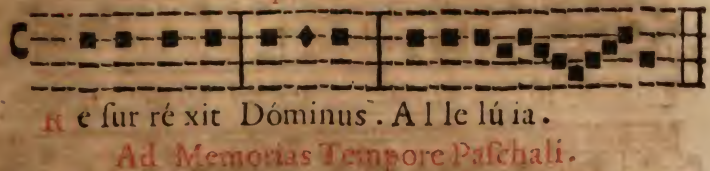 Re ſur ré xit Dóminus. A l le lú ia.
Ad Memorias Tempore Paſchali.